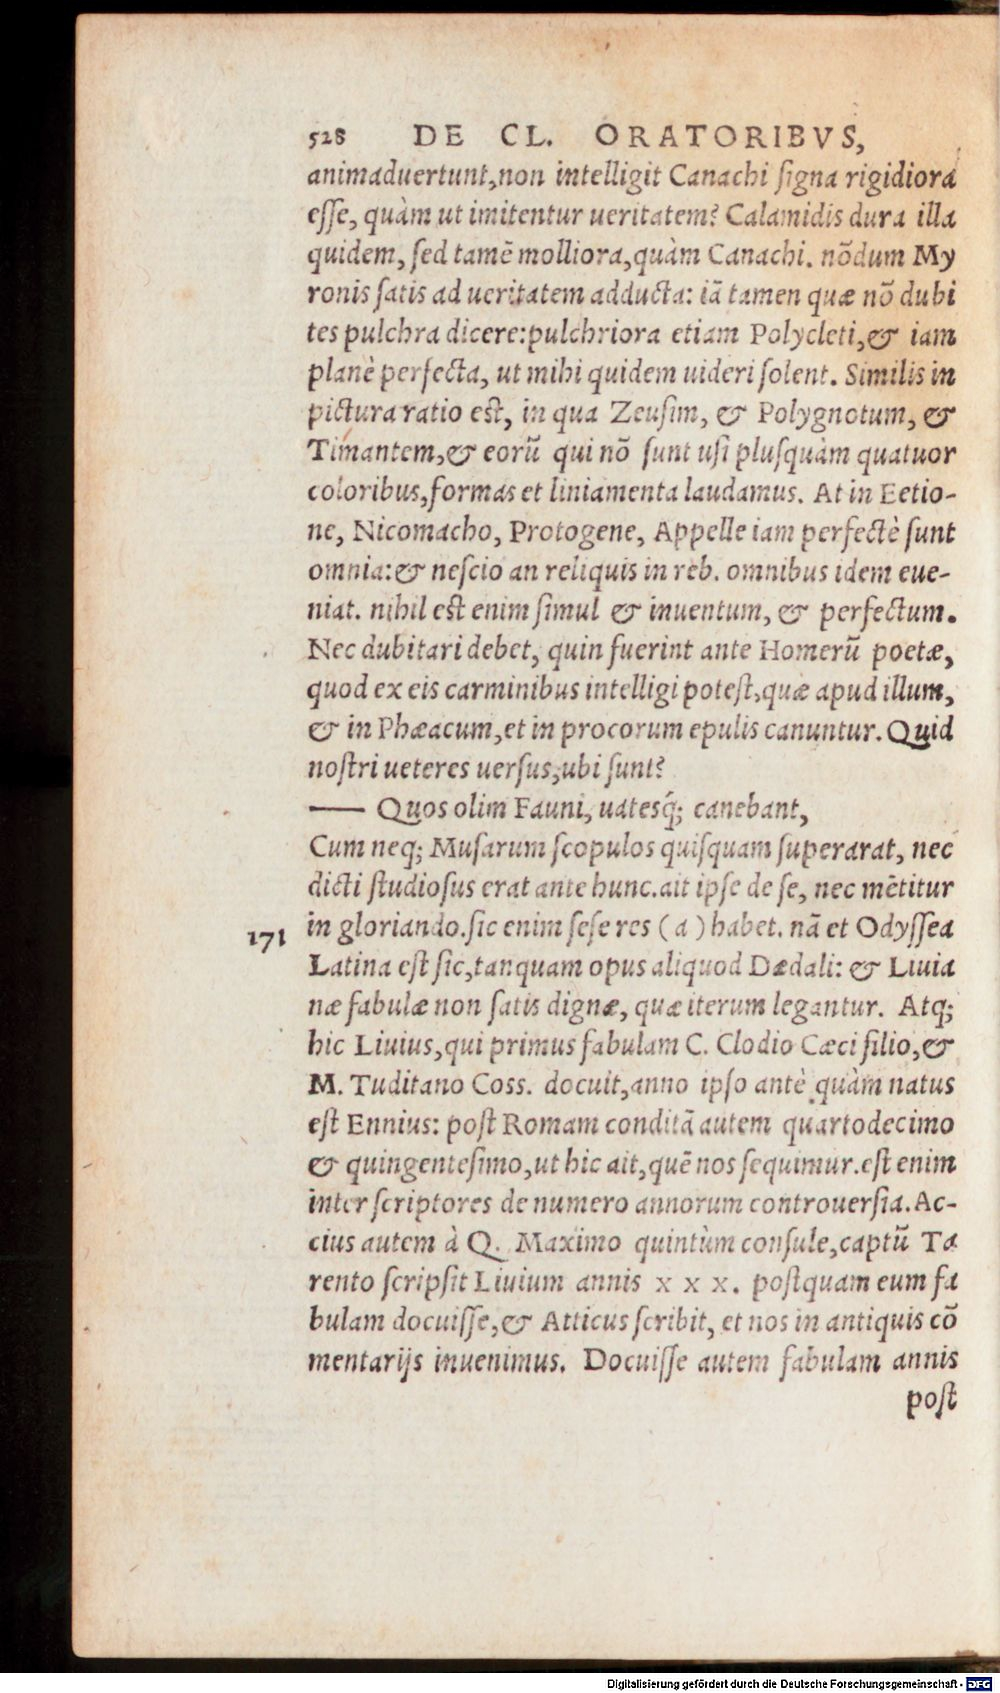 528 DE CL. ORATORIBVS,
animaduertunt,non intelligit Canachi ſigna rigidiora
eſſe, quàm ut imitentur ueritatem? Calamidis dura illa
quidem, ſed tamē molliora,quàm Canachi. nōdum My
ronis ſatis ad ueritatem adducta: iā tamen quæ nō dubi
tes pulchra dicere:pulchriora etiam Polycleti,& iam
planè perfecta, ut mihi quidem uideri ſolent. Similis in
pictura ratio eſt, in qua Zeuſim, & Polygnotum, &
Timantem,& eorū qui nō ſunt uſi pluſquàm quatuor
coloribus,formas et liniamenta laudamus. At in Eetio-
ne, Nicomacho, Protogene, Appelle iam perfectè ſunt
omnia:& neſcio an reliquis in reb. omnibus idem eue-
niat. nihil eſt enim ſimul & inuentum, & perfectum.
Nec dubitari debet, quin fuerint ante Homerū poetæ,
quod ex eis carminibus intelligi poteſt,quæ apud illum,
& in Phæacum,et in procorum epulis canuntur. Quid
noſtri ueteres uerſus,ubi ſunt?
—— Quos olim Fauni, uatesq́; canebant,
Cum neq; Muſarum ſcopulos quiſquam ſuperarat, nec
dicti ſtudioſus erat ante hunc.ait ipſe de ſe, nec mētitur
171 in gloriando.ſic enim ſeſe res (a) habet. nā et Odyſſea
Latina eſt ſic,tanquam opus aliquod Dædali: & Liuia
næ fabulæ non ſatis dignæ, quæ iterum legantur. Atq;
hic Liuius,qui primus fabulam C. Clodio Cæci filio,&
M. Tuditano Coss. docuit,anno ipſo antè quàm natus
eſt Ennius: poſt Romam conditā autem quartodecimo
& quingenteſimo,ut hic ait,quē nos ſequimur.eſt enim
inter ſcriptores de numero annorum controuerſia.Ac-
cius autem à Q. Maximo quintùm conſule,captū Ta
rento ſcripſit Liuium annis x x x. poſtquam eum fa
bulam docuiſſe,& Atticus ſcribit, et nos in antiquis cō
mentarijs inuenimus. Docuiſſe autem fabulam annis
poſt
Digitalisierung gefördert durch die Deutsche Forschungsgemeinschaft - DFG